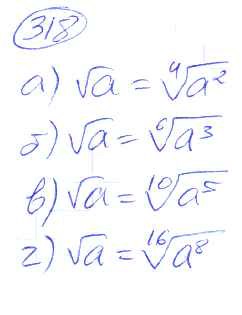 318
а) √a = ⁴√a²
б) √a = ⁶√a³
в) √a = ¹⁰√a⁵
г) √a = ¹⁶√a⁸